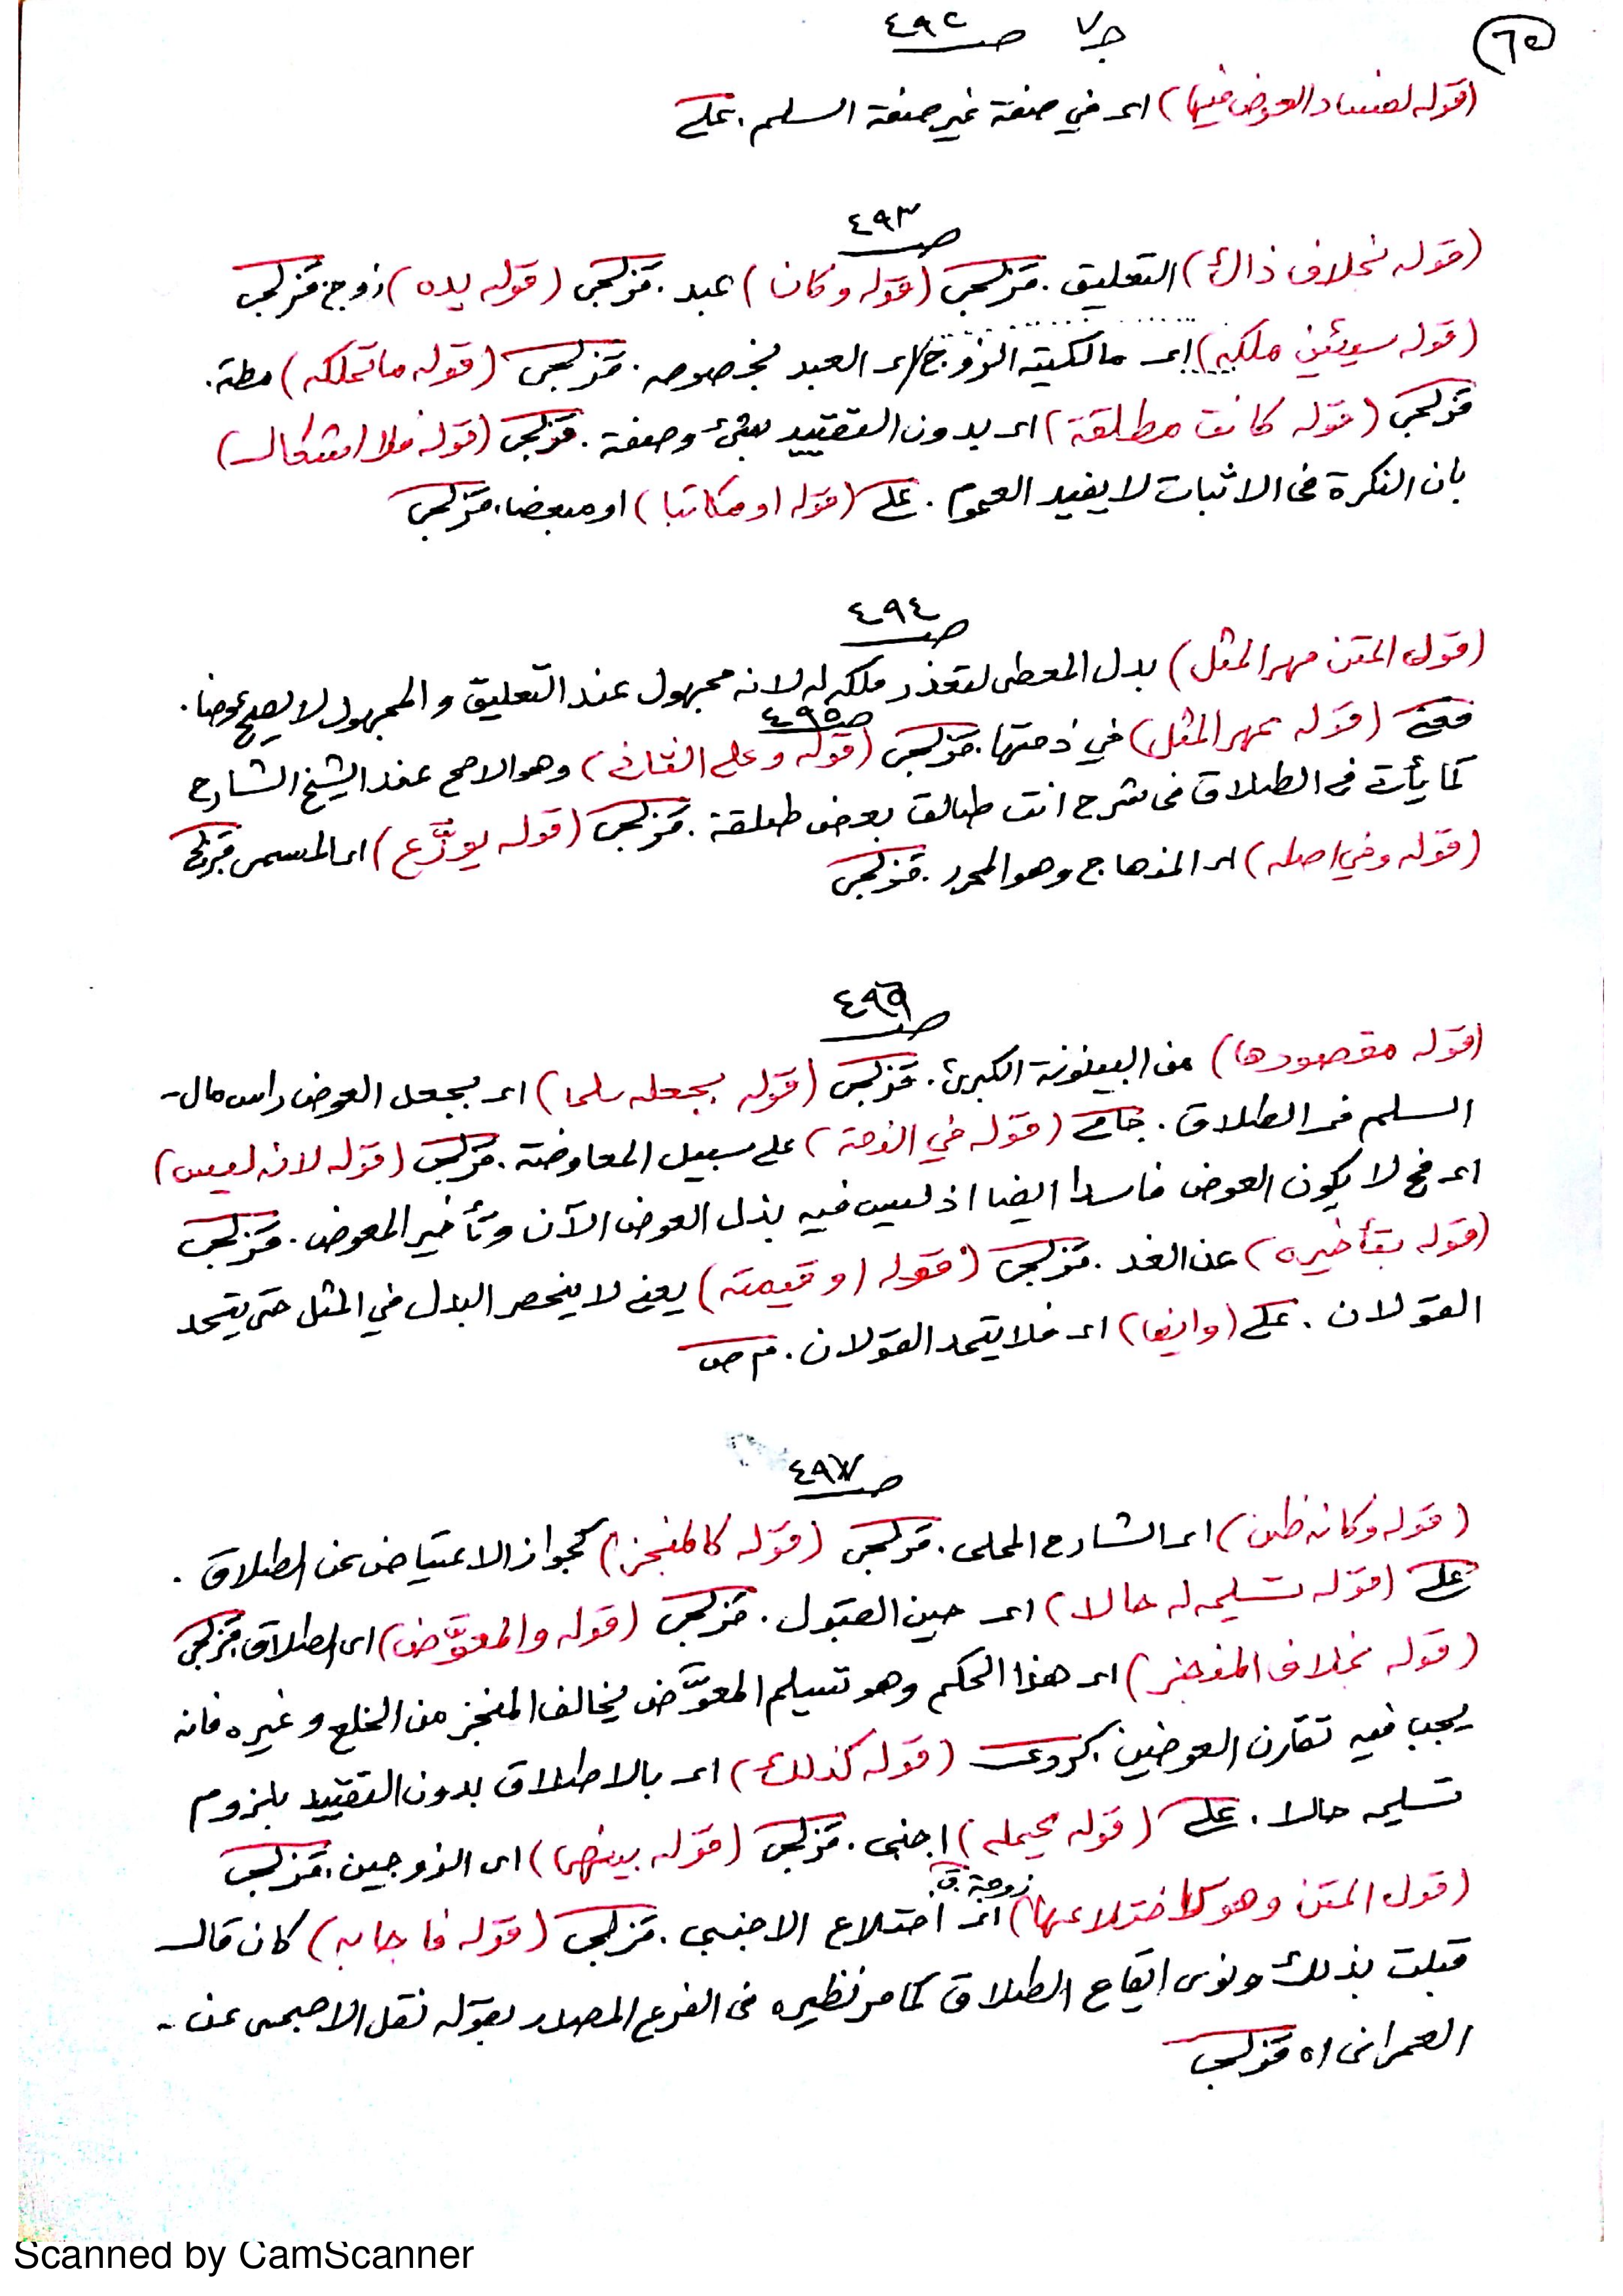 ٦٥
ج٧ صـ ٤٩٢
(قوله لفساد العوض فيها) اى في صفة غير صفة السلم. على
صـ ٤٩٣
(قوله بخلاف ذاك) التعليق. قزلجى (قوله وكان) عبد. قزلجى (قوله يده) زوج قزلجى
(قوله سيئين ملكه) اى مالكية الزوج اى العبد بخصوصه. قزلجى (قوله ما تملكه) مطة.
قزلجى (قوله كانت مطلقة) اى بدون التقييد بشئ وصفة. قزلجى (قوله فلا اشكال)
بان النكرة فى الاثبات لا يفيد العموم. على (قوله او مكاتبا) او مبعضا. قزلجى
صـ ٤٩٤
(قول المتن مهر المثل) بدل المعطى لتعذر ملكه له لانه مجهول عند التعليق والمجهول لا يصح عوضا.
(قوله بمهر المثل) في ذمتها. قزلجى صـ ٤٩٥ (قوله وعلى الثانى) وهو الاصح عند الشيخ الشارح
كما يأت فى الطلاق فى شرح انت طالق بعض طلقة. قزلجى (قوله يوزَّع) اى المسمى قزلجى
(قوله وفي اصله) اى المنهاج وهو المحرر. قزلجى
صـ ٤٩٦
(قوله مقصودها) من البينونة الكبرى. قزلجى (قوله بجعله سلما) اى بجعل العوض راس مال
السلم فى الطلاق. جامى (قوله في الذمة) على سبيل المعاوضة. قزلجى (قوله لانه ليس)
اى فح لا يكون العوض فاسدا ايضا اذ ليس فيه بذل العوض الآن وتأخير المعوض. قزلجى
(قوله بتأخيره) عن الغد. قزلجى (قوله او قيمته) يعنى لا ينحصر البدل في المثل حتى يتحد
القولان. على (وايضا) اى فلا يتحد القولان. م ص
صـ ٤٩٧
(قوله وكانه ظن) اى الشارح المحلى. قزلجى (قوله كالمنجز) كجواز الاعتياض عن الطلاق.
على (قوله تسليمه له حالا) اى حين القبول. قزلجى (قوله والمعوَّض) اى الطلاق قزلجى
(قوله بخلاف المنجز) اى هذا الحكم وهو تسليم المعوَّض يخالف المنجز من الخلع وغيره فانه
يجب فيه تقارن العوضين كروى (قوله كذلك) اى بالاطلاق بدون التقييد بلزوم
تسليمه حالا. على (قوله يحيله) اجنبى. قزلجى (قوله بينهما) اى الزوجين. قزلجى
(قول المتن وهو كاختلاعها) اى اختلاع الاجنبى. قزلجى (قوله فاجابه) كان قال
زوجة. ق
قبلت بذلك ونوى ايقاع الطلاق كما مر نظيره فى الفرع المصدر بقوله نقل الاصبحى عن
العمرانى اه قزلجى
Scanned by CamScanner